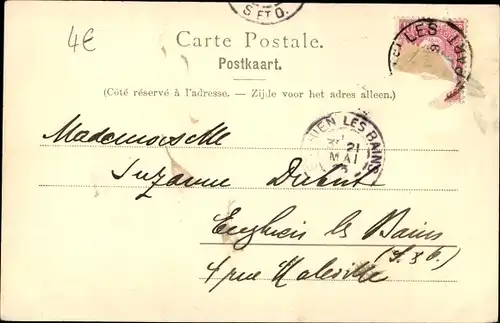 S. ET O.
4€
LES
Carte Postale.
Postkaart.
(Côté réservé à l'adresse. — Zijde voor het adres alleen.)
LES BAINS
21
MAI
Mademoiselle
Suzanne
Enghien les Bains
(S. & O.)
4 rue Maleville